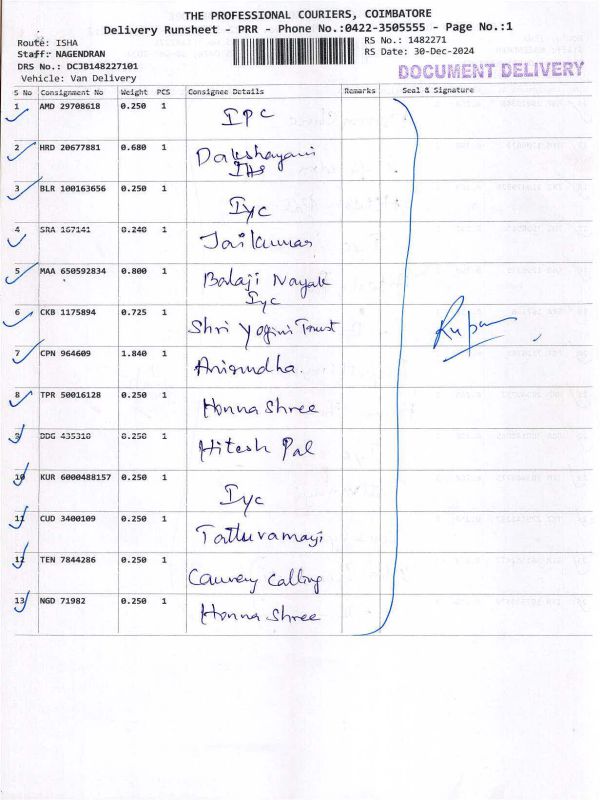 THE PROFESSIONAL COURIERS, COIMBATORE
Delivery Runsheet - PRR - Phone No.:0422-3505555 - Page No.:1
Route: ISHA RS No.: 1482271
Staff: NAGENDRAN RS Date: 30-Dec-2024
DRS No.: DCJB148227101
Vehicle: Van Delivery
DOCUMENT DELIVERY
S No Consignment No Weight PCS Consignee Details Remarks Seal & Signature
1 AMD 29708618 0.250 1 IPC
2 HRD 20677881 0.680 1 Dakshayani
IHS
3 BLR 100163656 0.250 1 Iyc
4 SRA 167141 0.240 1 Jaikumar
5 MAA 650592834 0.800 1 Balaji Nayak
Iyc
6 CKB 1175894 0.725 1 Shri Yogini Trust
7 CPN 964609 1.840 1 Anirudha.
8 TPR 50016128 0.250 1 Honna Shree
9 DDG 435318 0.250 1 Hitesh Pal
10 KUR 6000488157 0.250 1 Iyc
11 CUD 3400109 0.250 1 Tattuvamayi
12 TEN 7844286 0.250 1 Cauvery Calling
13 NGD 71982 0.250 1 Honna Shree